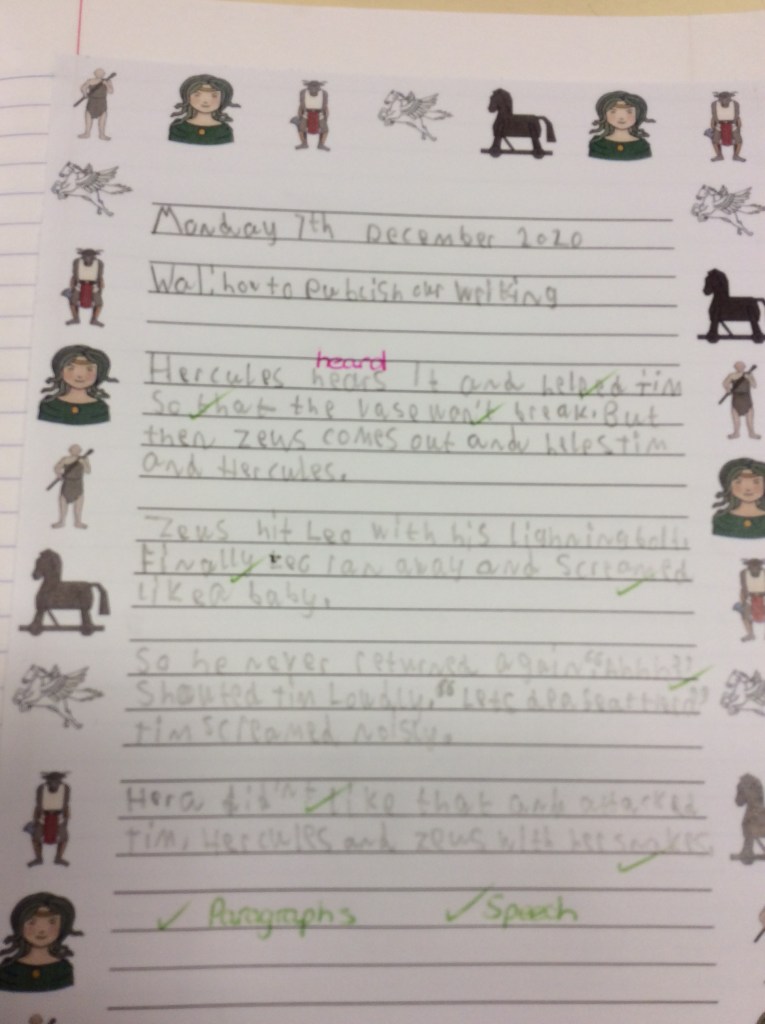 Monday 7th December 2020
Wal: how to publish our writing
heard
Hercules hears It and helped tim
So that the vase won't break. But
then zeus comes out and helps tim
and Hercules.
Zeus hit Leo with his lighning bolt.
Finally Leo ran away and Screamed
like a baby.
So he never returned again. "Ahhhh!!
Shouted tim Loudly. "Lets
tim Screamed noisly.
Hera didn't like that and attacked
tim, Hercules and zeus with her snakes
✓ Paragraphs ✓ Speech